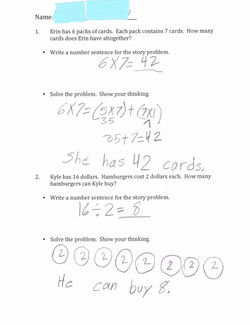 Name:
1. Erin has 6 packs of cards. Each pack contains 7 cards. How many
cards does Erin have altogether?
• Write a number sentence for the story problem.
6X7=42
• Solve the problem. Show your thinking.
6X7=(5X7)+(7X1)
35
35+7=42
She has 42 cards.
2. Kyle has 16 dollars. Hamburgers cost 2 dollars each. How many
hamburgers can Kyle buy?
• Write a number sentence for the story problem.
16÷2=8
• Solve the problem. Show your thinking.
2 2 2 2 2 2 2 2
He can buy 8.